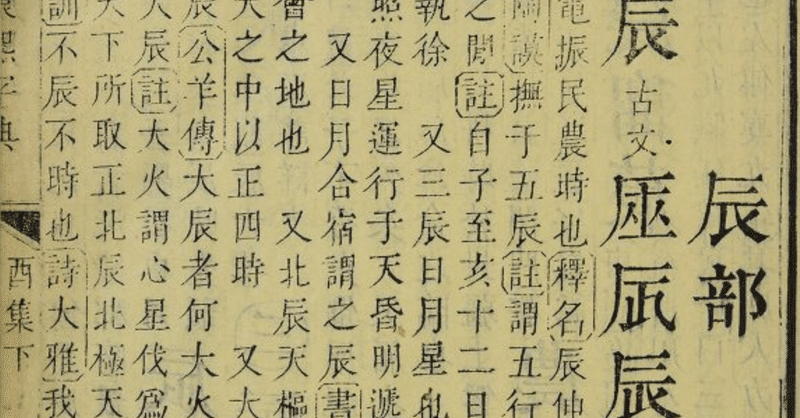 辰部
辰 古文
電振民農時也釋名辰伸
陶謨撫于五辰註謂五行
之閒註自子至亥十二日
執徐 又三辰日月星也
照夜星運行于天昏明遞
又日月合宿謂之辰書
會之地也 又北辰天樞
大之中以正四時 又大
辰公羊傳大辰者何大火
大辰註大火謂心星伐爲
天下所取正北辰北極天
訓不辰不時也詩大雅我
熙字典 酉集下